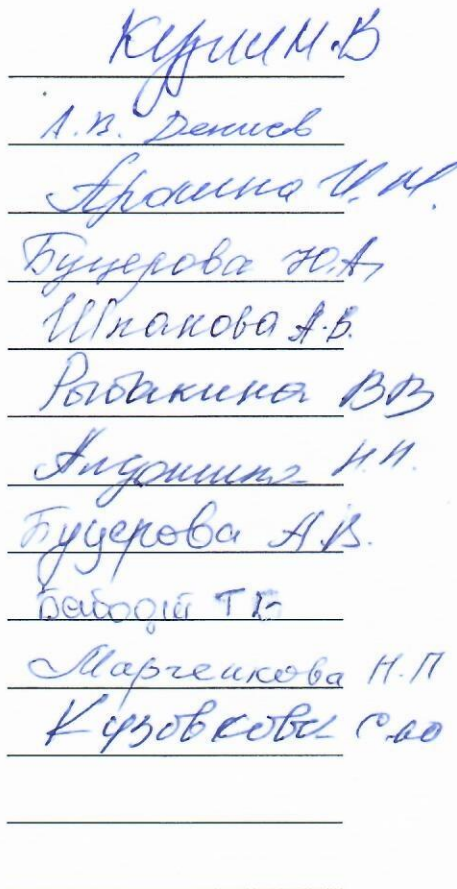 Кузин М.В
А.В. Денисов
Аронина И.М.
Буцерова Ю.А.
Шпакова А.В.
Рыбакина ВВ
Алдошина Н.Н.
Буцерова А.В.
Т
Марченкова Н.П
Кузовкова